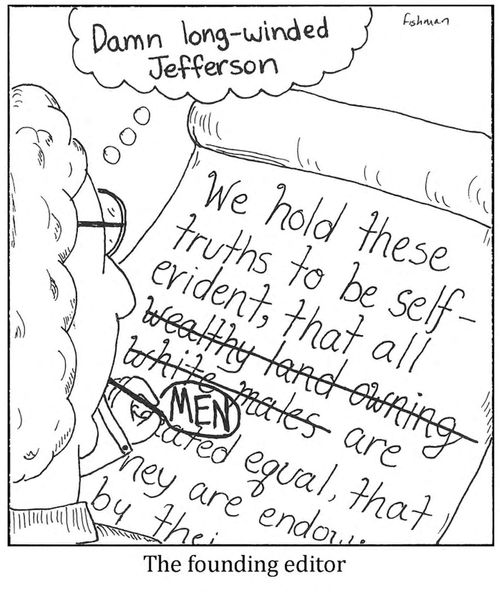 Damn long-winded
Jefferson
Fishman
We hold these
truths to be self-
evident, that all
wealthy land owning
white males are
MEN
equal, that
they are
by
The founding editor